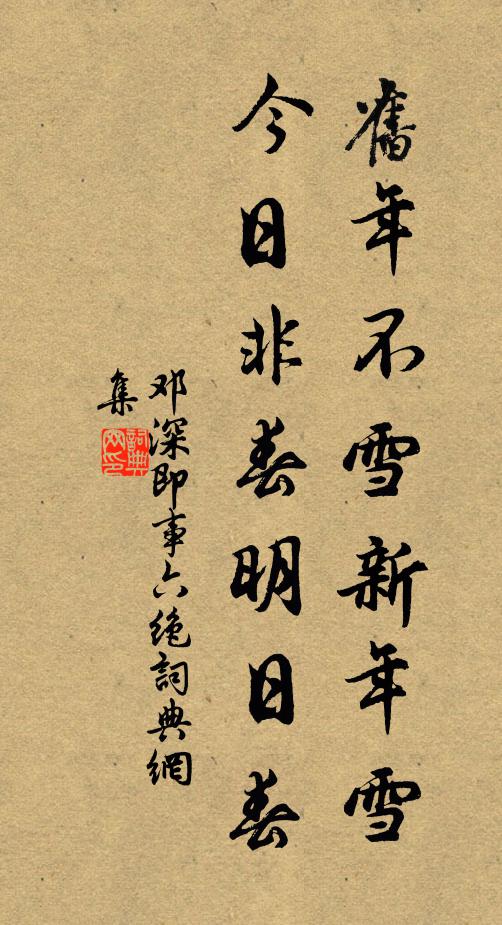 舊年不雪新年雪
今日非春明日春
邓深即事六绝詞典網
集
詞典
网印